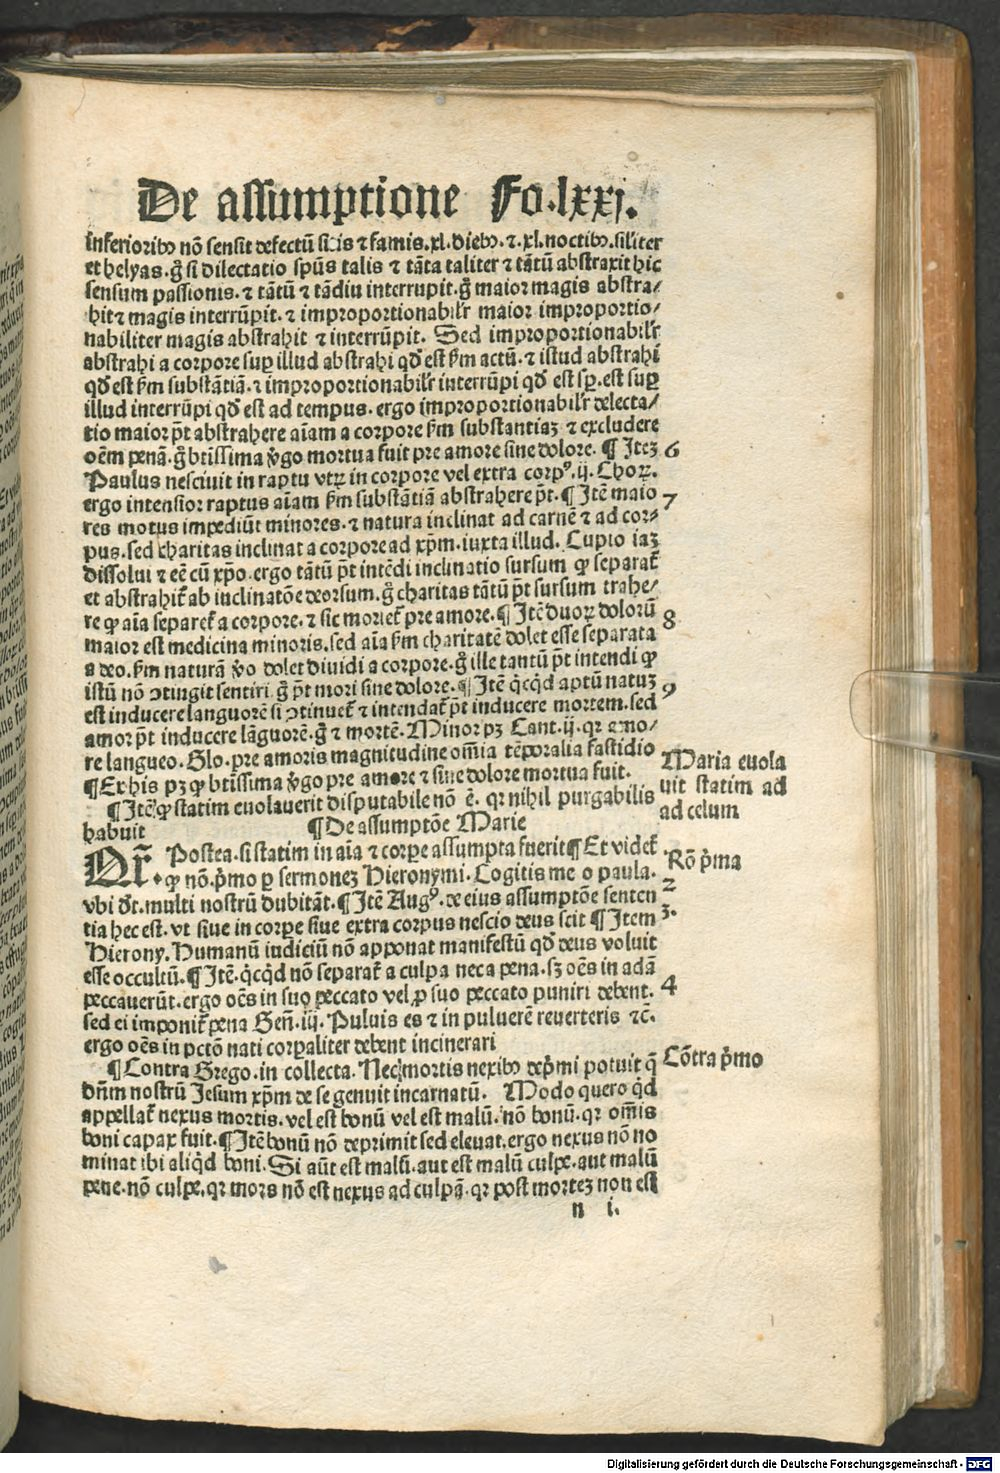 De assumptione Fo.lxxj.
inferioribꝰ nõ sensit defectũ sitis ⁊ famis.xl.diebꝰ.⁊.xl.noctibꝰ.siliter
et helyas.g̃ si dilectatio spũs talis ⁊ tãta taliter ⁊ tãtũ abstraxit hic
sensum passionis.⁊ tãtũ ⁊ tãdiu interrupit.g̃ maior magis abstra⸗
hit⁊ magis interrũpit.⁊ improportionabilr̃ maior improportio⸗
nabiliter magis abstrahit ⁊ interrũpit. Sed improportionabilr̃
abstrahi a corpore suꝑ illud abstrahi qd̃ est ẜm actũ.⁊ istud abstrahi
qd̃ est ẜm substãtiã.⁊ improportionabilr̃ interrũpi qd̃ est sꝑ.est suꝑ
illud interrũpi qd̃ est ad tempus.ergo improportionabilr̃ delecta⸗
tio maior p̃t abstrahere aĩam a corpore ẜm substantiaꝫ ⁊ excludere
oẽm penã.g̃ btissima ṽgo mortua fuit pre amore sine dolore.¶ Iteꝫ 6
Paulus nesciuit in raptu vtꝝ in corpore vel extra corpꝰ.ij.Choꝝ.
ergo intensior raptus aĩam ẜm substãtiã abstrahere p̃t.¶ Itẽ maio 7
res motus impediũt minores.⁊ natura inclinat ad carnẽ ⁊ ad cor⸗
pus.sed charitas inclinat a corpore ad xp̃m.iuxta illud. Cupio iaꝫ
dissolui ⁊ eẽ cũ xp̃o.ergo tãtũ p̃t intẽdi inclinatio sursum ꝙ separat̃
et abstrahit̃ ab inclinatõe deorsum.g̃ charitas tãtũ p̃t sursum trahe⸗
re ꝙ aĩa separet̃ a corpore.⁊ sic moriet̃ pre amore.¶ Itẽ duoꝝ dolorũ 8
maior est medicina minoris.sed aĩa ẜm charitatẽ dolet esse separata
a deo.ẜm naturã ṽo dolet diuidi a corpore.g̃ ille tantũ p̃t intendi ꝙ
istũ nõ ɔtingit sentiri.g̃ p̃t mori sine dolore.¶ Itẽ q̃cq̃d aptũ natuꝫ 9
est inducere languorẽ si ɔtinuet̃ ⁊ intendat̃ p̃t inducere mortem.sed
amor p̃t inducere lãguorẽ.g̃ ⁊ mortẽ.Minor pꝫ Cant.ij.qꝛ amo⸗
re langueo.Glo.pre amoris magnitudine om̃ia tẽporalia fastidio
¶ Ex his pꝫ ꝙ btissima ṽgo pre amore ⁊ sine dolore mortua fuit.
¶ Itẽ ꝙ statim euolauerit disputabile nõ ẽ. qꝛ nihil purgabilis
habuit ¶ De assumptõe Marie
Maria euola
uit statim ad
ad celum
Qr̃. Postea.si statim in aĩa ⁊ corꝑe assumpta fuerit¶ Et videt̃
ꝙ nõ.p̃mo ꝑ sermoneꝫ Hieronymi.Cogitis me o paula.
Rõ p̃ma
vbi d̃t.multi nostrũ dubitãt.¶ Itẽ Augꝰ.de eius assumptõe senten 2
tia hec est.vt siue in corꝑe siue extra corpus nescio deus scit ¶ Item 3.
Hierony.Humanũ iudiciũ nõ apponat manifestũ qd̃ deus voluit
esse occultũ.¶ Itẽ.q̃cq̃d nõ separat̃ a culpa nec a pena.sꝫ oẽs in adã
peccauerũt.ergo oẽs in suo peccato vel ꝓ suo peccato puniri debent. 4
sed ei imponit̃ pena Geñ.iij.Puluis es ⁊ in puluerẽ reuerteris ⁊c̃.
ergo oẽs in pctõ nati corꝑaliter debent incinerari
¶ Contra Grego.in collecta.Nec mortis nexibꝰ dep̃mi potuit q̃ Cõtra p̃mo
dñm nostrũ Jesum xp̃m de se genuit incarnatũ. Modo quero q̃d
appellat̃ nexus mortis.vel est bonũ vel est malũ.nõ bonũ.qꝛ om̃is
boni capax fuit.¶ Itẽ bonũ nõ deprimit sed eleuat.ergo nexus nõ no
minat ibi aliq̃d boni.Si aũt est malũ.aut est malũ culpe.aut malũ
pene.nõ culpe.qꝛ mors nõ est nexus ad culpã.qꝛ post morteꝫ non est
n i.
Digitalisierung gefördert durch die Deutsche Forschungsgemeinschaft - DFG